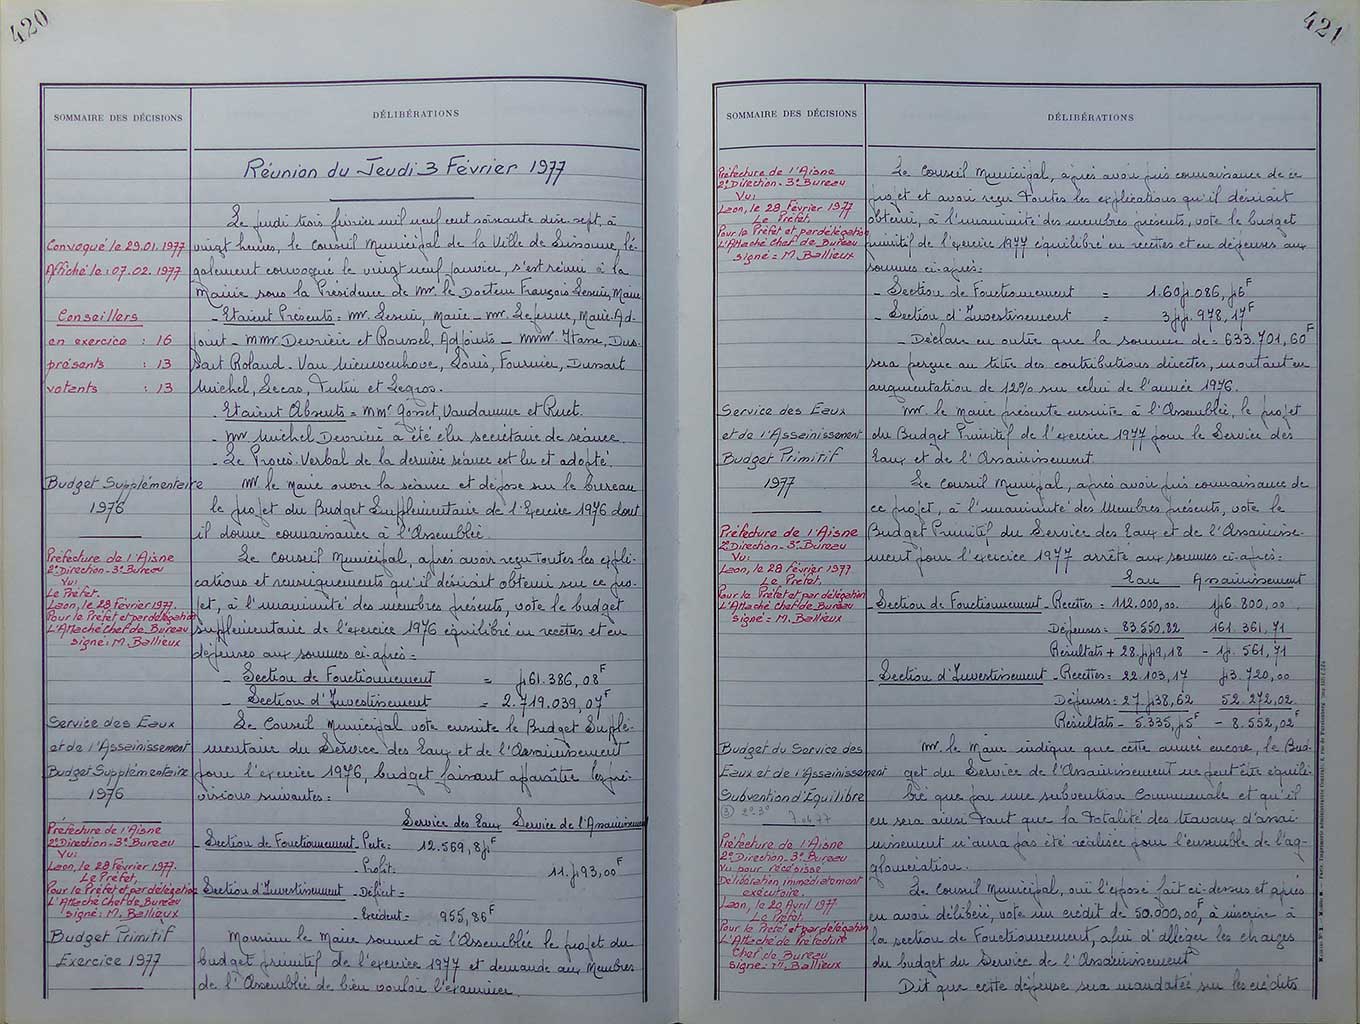 420
SOMMAIRE DES DÉCISIONS
DÉLIBÉRATIONS
Réunion du Jeudi 3 Février 1977
Le jeudi trois février mil neuf cent soixante dix sept, à
Convoqué le 29.01.1977
vingt heures, le Conseil Municipal de la Ville de Sissonne, lé-
Affiché le : 07.02.1977
galement convoqué le vingt neuf janvier, s'est réuni à la
Mairie sous la Présidence de Mr. le Docteur François Maire
Conseillers
- Etaient Présents : Mr. Maire - Mr. Maire-Ad-
en exercice : 16
joint - MMr Devrière et Roussel, Adjoints - MMr.
présents : 13
Roland. Van Nieuwenhove, Louis, Fournier, Dussart
votants : 13
Michel, Lecas, et Legros.
- Etaient Absents = MMr Gosset, Vandamme et Ruet.
- Mr Michel Devrière a été élu secrétaire de séance.
- Le Procès-Verbal de la dernière séance est lu et adopté.
Budget Supplémentaire
1976
Mr le Maire ouvre la séance et dépose sur le bureau
le projet du Budget Supplémentaire de l'Exercice 1976 dont
il donne connaissance à l'Assemblée.
Préfecture de l'Aisne
2e Direction - 3e Bureau
Vu :
Le Préfet.
Laon, le 28 Février 1977.
Pour le Préfet et par délégation
L'Attaché Chef de Bureau
signé : M. Ballieux
Le Conseil Municipal, après avoir reçu toutes les expli-
cations et renseignements qu'il désirait obtenir sur ce pro-
jet, à l'unanimité des membres présents, vote le budget
supplémentaire de l'exercice 1976 équilibré en recettes et en
dépenses aux sommes ci-après =
- Section de Fonctionnement = 61.386,08F
- Section d'Investissement = 2.719.039,07F
Service des Eaux
et de l'Assainissement
Budget Supplémentaire
1976
Le Conseil Municipal vote ensuite le Budget Supplé-
mentaire du Service des Eaux et de l'Assainissement
pour l'exercice 1976, budget faisant apparaître les pré-
visions suivantes =
Service des Eaux Service de l'Assainissement
Préfecture de l'Aisne
2e Direction - 3e Bureau
Vu :
Laon, le 28 Février 1977.
Le Préfet,
Pour le Préfet et par délégation
L'Attaché Chef de Bureau
signé : M. Ballieux
- Section de Fonctionnement - Perte =
- Profit =
Section d'Investissement - Déficit =
- Excédent = 955,86F
Budget Primitif
Exercice 1977
Monsieur le Maire soumet à l'Assemblée le projet du
budget primitif de l'exercice 1977 et demande aux Membres
de l'Assemblée de bien vouloir l'examiner.
421
SOMMAIRE DES DÉCISIONS
DÉLIBÉRATIONS
Préfecture de l'Aisne
2e Direction - 3e Bureau
Vu :
Laon, le 28 Février 1977
Le Préfet,
Pour le Préfet et par délégation
L'Attaché Chef de Bureau
signé = M. Ballieux
Le Conseil Municipal, après avoir pris connaissance de ce
projet et avoir reçu toutes les explications qu'il désirait
obtenir, à l'unanimité des membres présents, vote le budget
primitif de l'exercice 1977 équilibré en recettes et en dépenses aux
sommes ci-après :
- Section de Fonctionnement =
- Section d'Investissement =
- Déclare en outre que la somme de = 633.701,60F
sera perçue au titre des contributions directes, montant en
augmentation de 12% sur celui de l'année 1976.
Service des Eaux
et de l'Assainissement
Budget Primitif
1977
Mr. le Maire présente ensuite à l'Assemblée, le projet
du Budget Primitif de l'exercice 1977 pour le Service des
Eaux et de l'Assainissement.
Le Conseil Municipal, après avoir pris connaissance de
ce projet, à l'unanimité des Membres présents, vote le
Budget Primitif du Service des Eaux et de l'Assainisse-
ment pour l'exercice 1977 arrêté aux sommes ci-après :
Préfecture de l'Aisne
2e Direction - 3e Bureau
Vu :
Laon, le 28 Février 1977.
Le Préfet,
Pour le Préfet et par délégation
L'Attaché Chef de Bureau
signé = M. Ballieux
Eau Assainissement
- Section de Fonctionnement - Recettes = 112.000,00.
Dépenses = 83.550.82 161.361,71
Résultats +
- Section d'Investissement - Recettes = 22.103,17
Dépenses = 52.272,02
Résultats - - 8.552,02F
Budget du Service des
Eaux et de l'Assainissement
Subvention d'Equilibre
Mr. le Maire indique que cette année encore, le Bud-
get du Service de l'Assainissement ne peut être équili-
bré que par une subvention Communale et qu'il
en sera ainsi tant que la totalité des travaux d'assai-
nissement n'aura pas été réalisée pour l'ensemble de l'ag-
glomération.
Préfecture de l'Aisne
2e Direction - 3e Bureau
Vu pour récépissé
Délibération immédiatement
exécutoire.
Laon, le 20 Avril 1977
Le Préfet,
Pour le Préfet et par délégation
L'Attaché de Préfecture
Chef de Bureau
signé : M. Ballieux
Le Conseil Municipal, ouï l'exposé fait ci-dessus et après
en avoir délibéré, vote un crédit de 50.000,00F, à inscrire à
la section de Fonctionnement, afin d'alléger les charges
du budget du Service de l'Assainissement
Dit que cette dépense sera mandatée sur les crédits